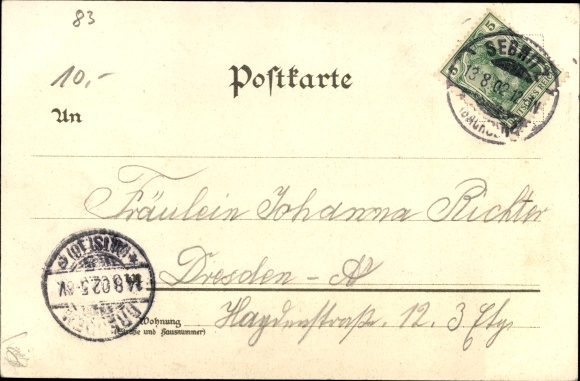 83
10,-
Postkarte
An
SEBNITZ
13.8.02
5
5
Fräulein Johanna Richter
Dresden - A.
14.8.02.5-6V.
Wohnung
(Straße und Hausnummer)
Haydnstraß. 12. 3 Etg.